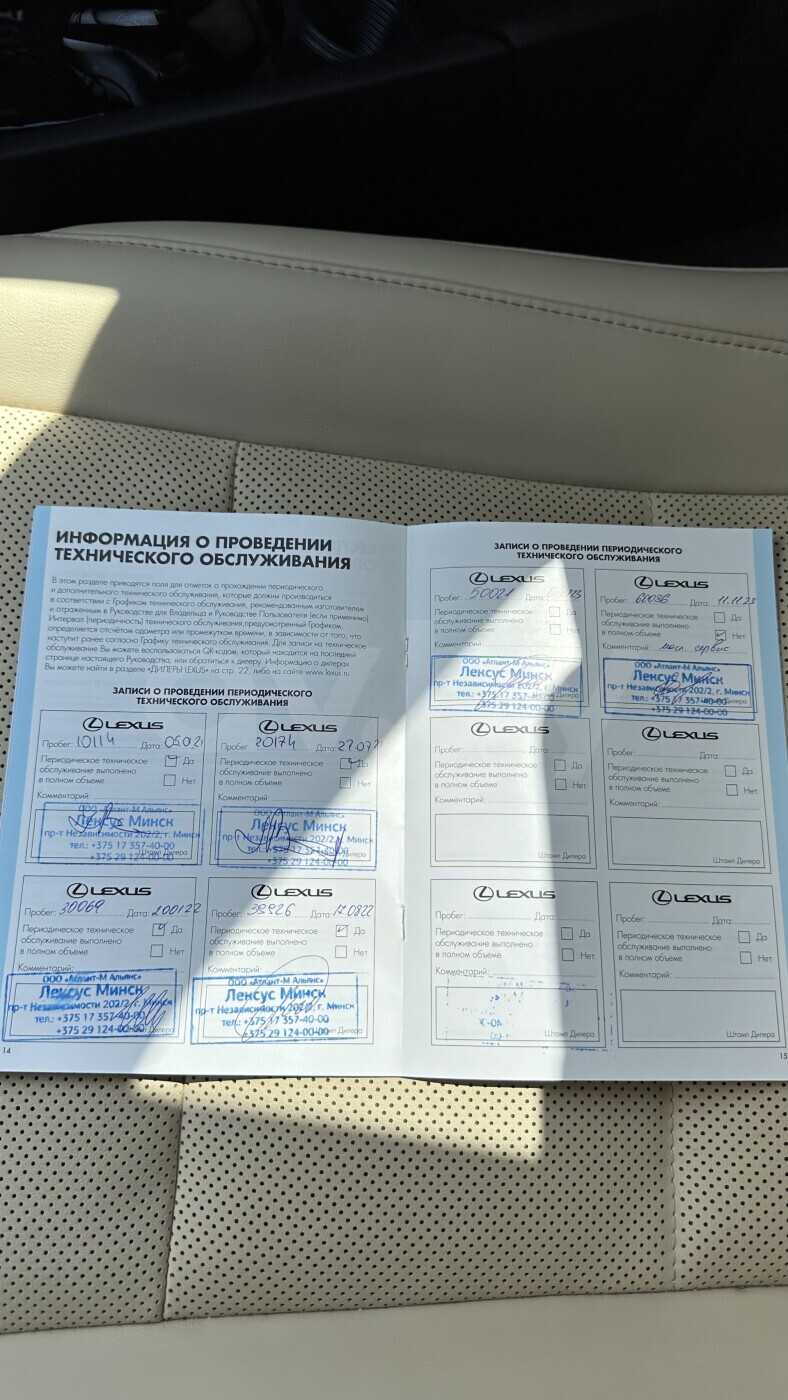 ИНФОРМАЦИЯ О ПРОВЕДЕНИИ
ТЕХНИЧЕСКОГО ОБСЛУЖИВАНИЯ
В этом разделе приводятся поля для отметок о прохождении периодического
и дополнительного технического обслуживания, которые должны производиться
в соответствии с Графиком технического обслуживания, рекомендованным изготовителем
и отраженным в Руководстве для Владельца и Руководстве Пользователя (если применимо)
Интервал (периодичность) технического обслуживания, предусмотренный Графиком,
определяется отсчётом одометра или промежутком времени, в зависимости от того, что
наступит ранее согласно Графику технического обслуживания. Для записи на техническое
обслуживание Вы можете воспользоваться QR-кодом, который находится на последней
странице настоящего Руководства, или обратиться к дилеру. Информацию о дилерах
Вы можете найти в разделе «ДИЛЕРЫ LEXUS» на стр. 22, либо на сайте www.lexus.ru.
ЗАПИСИ О ПРОВЕДЕНИИ ПЕРИОДИЧЕСКОГО
ТЕХНИЧЕСКОГО ОБСЛУЖИВАНИЯ
LEXUS
Пробег: 10114 Дата:
Периодическое техническое
обслуживание выполнено
в полном объеме
Да
Нет
Комментарий:
ООО «Атлант-М Альянс»
Лексус Минск
пр-т Независимости 202/2, г. Минск
тел.: +375 17 357-40-00
+375 29 124-00-00
LEXUS
Пробег: 20174 Дата:
Периодическое техническое
обслуживание выполнено
в полном объеме
Да
Нет
Комментарий:
ООО «Атлант-М Альянс»
Лексус Минск
пр-т Независимости 202/2, г. Минск
тел.: +375 17 357-40-00
+375 29 124-00-00
LEXUS
Пробег: 30069 Дата: 200122
Периодическое техническое
обслуживание выполнено
в полном объеме
Да
Нет
Комментарий:
ООО «Атлант-М Альянс»
Лексус Минск
пр-т Независимости 202/2, г. Минск
тел.: +375 17 357-40-00
+375 29 124-00-00
LEXUS
Пробег: Дата: 170822
Периодическое техническое
обслуживание выполнено
в полном объеме
Да
Нет
Комментарий:
ООО «Атлант-М Альянс»
Лексус Минск
пр-т Независимости 202/2, г. Минск
тел.: +375 17 357-40-00
+375 29 124-00-00
14
ЗАПИСИ О ПРОВЕДЕНИИ ПЕРИОДИЧЕСКОГО
ТЕХНИЧЕСКОГО ОБСЛУЖИВАНИЯ
LEXUS
Пробег: 50021 Дата:
Периодическое техническое
обслуживание выполнено
в полном объеме
Да
Нет
Комментарий:
ООО «Атлант-М Альянс»
Лексус Минск
пр-т Независимости 202/2, г. Минск
тел.: +375 17 357-40-00
+375 29 124-00-00
LEXUS
Пробег: Дата: 11.11.23
Периодическое техническое
обслуживание выполнено
в полном объеме
Да
Нет
Комментарий: сервис
ООО «Атлант-М Альянс»
Лексус Минск
пр-т Независимости 202/2, г. Минск
тел.: +375 17 357-40-00
+375 29 124-00-00
LEXUS
Пробег: Дата:
Периодическое техническое
обслуживание выполнено
в полном объеме
Да
Нет
Комментарий:
Штамп Дилера
LEXUS
Пробег: Дата:
Периодическое техническое
обслуживание выполнено
в полном объеме
Да
Нет
Комментарий:
Штамп Дилера
LEXUS
Пробег: Дата:
Периодическое техническое
обслуживание выполнено
в полном объеме
Да
Нет
Комментарий:
Штамп Дилера
LEXUS
Пробег: Дата:
Периодическое техническое
обслуживание выполнено
в полном объеме
Да
Нет
Комментарий:
Штамп Дилера
15